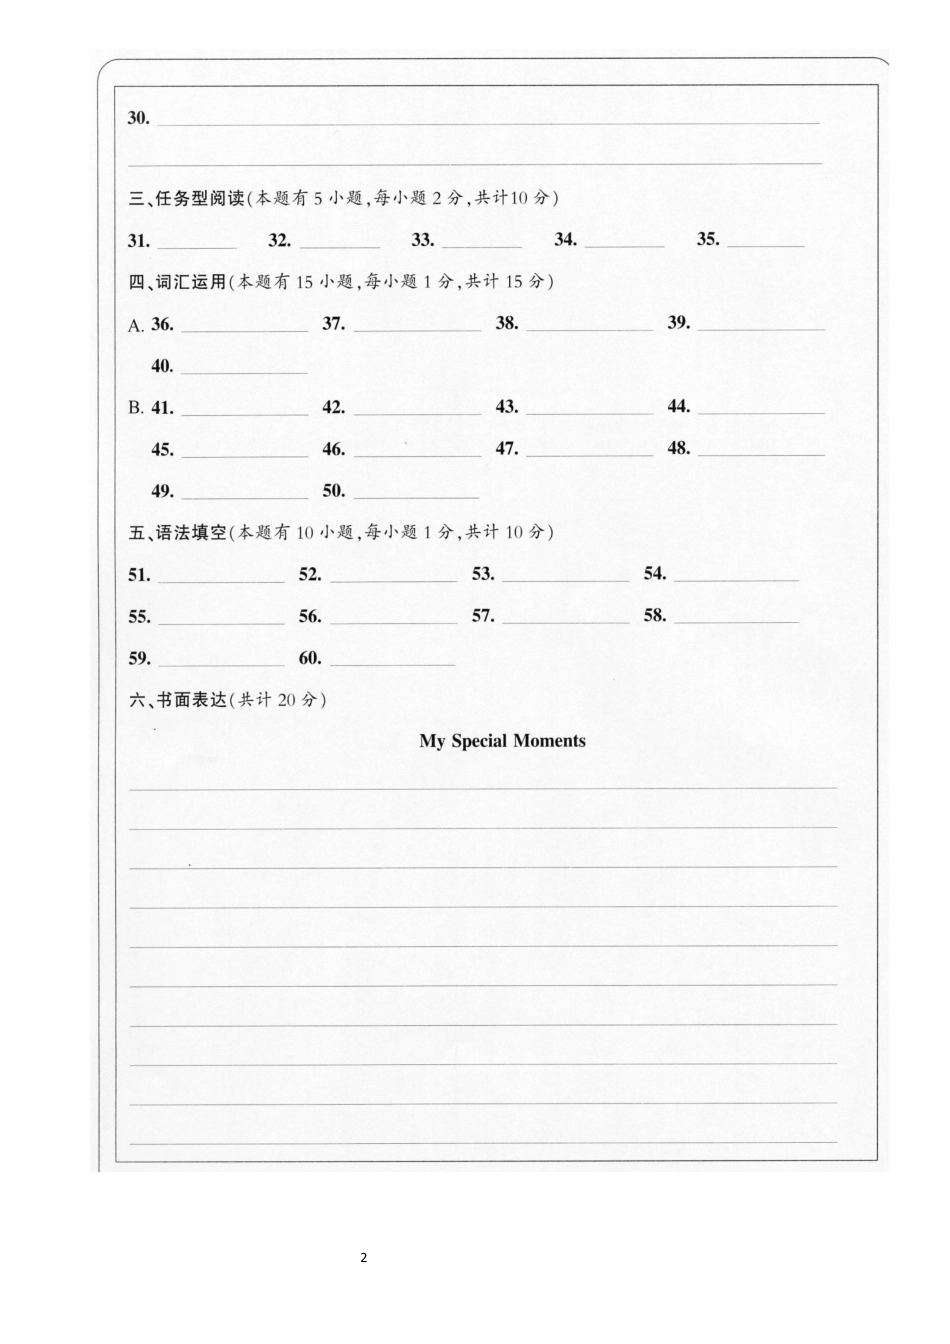 30.
三、任务型阅读(本题有 5 小题,每小题 2 分,共计10 分)
31. 32. 33. 34. 35.
四、词汇运用(本题有 15 小题,每小题 1 分,共计 15 分)
A. 36. 37. 38. 39.
40.
B. 41. 42. 43. 44.
45. 46. 47. 48.
49. 50.
五、语法填空(本题有 10 小题,每小题 1 分,共计 10 分)
51. 52. 53. 54.
55. 56. 57. 58.
59. 60.
六、书面表达(共计 20 分)
My Special Moments
2